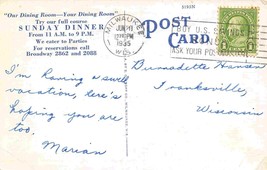 "Our Dining Room—Your Dining Room"
Try our full course
SUNDAY DINNER
From 11 A.M. to 9 P.M.
We cater to Parties
For reservations call
Broadway 2862 and 2088
POST
CARD
MILWAUKEE
JUL
PM
1935
WIS.
BUY U.S. SAV
ASK YOUR POS
I'm having a swell
vacation, here's
hoping you are
too.
Marian
Bernadette
Franksville,
Wisconsin